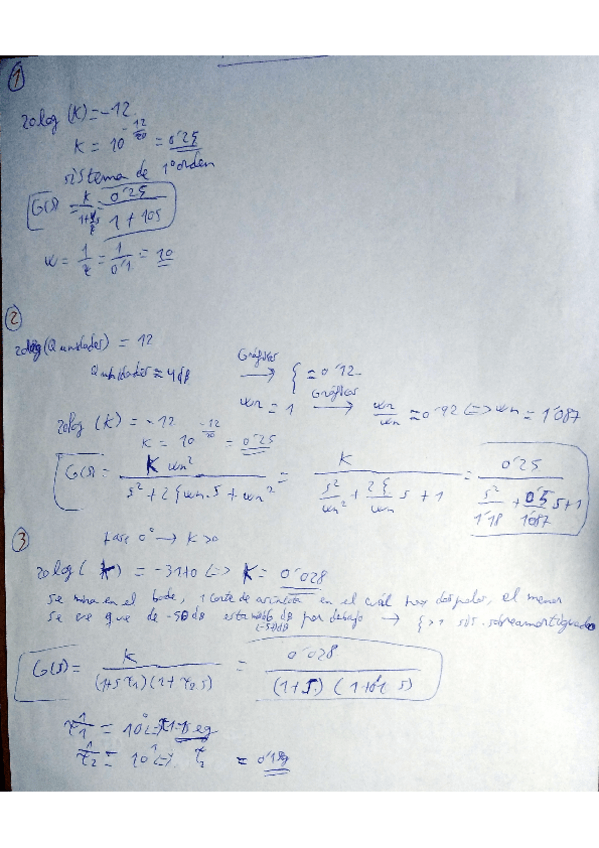 1
20log (K) = -12
K = 10^(-12/20) = 0'25
sistema de 1º orden
G(s) = K/(1+τs) = 0'25/(1 + 10s)
w = 1/τ = 1/0'1 = 10
2
20log (Q unidades) = 12
Q unidades ≈ 4 dB
Gráficas → ξ = 0'12
wr = 1 Gráficas → wr/wn ≈ 0'92 <=> wn = 1'087
20log (K) = -12
K = 10^(-12/20) = 0'25
G(s) = K wn²/(s² + 2ξwn·s + wn²) = K/(s²/wn² + 2ξ/wn s + 1) = 0'25/(s²/1'18 + 0'5/1'087 s + 1)
fase 0° → K > 0
3
20log( K ) = -31+0 <=> K = 0'028
Se mira en el bode, 1 corte de asíntota en el cuál hay dos polos, el menor
Se ve que de -50 dB por debajo → ξ > 1 sis. sobreamortiguado
(-51)dB
G(s) = K/((1+sτ1)(1+τ2 s)) = 0'028/((1+s)(1+0'1 s))
1/τ1 = 10⁰ <=> τ1 = 1 seg
1/τ2 = 10¹ <=> τ2 = 0'1 sg